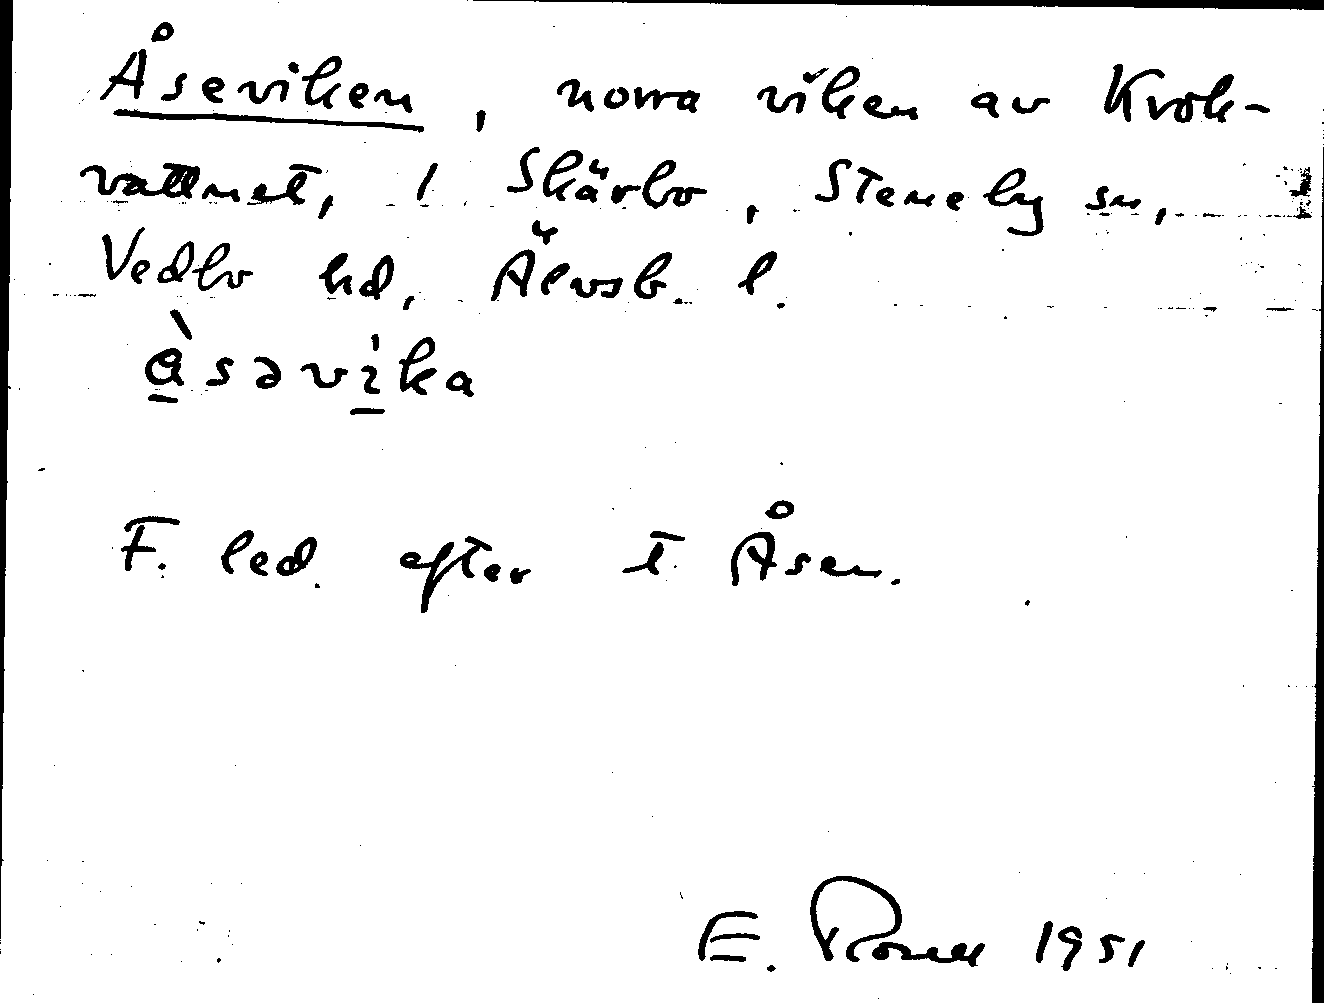 Åseviken, norra viken av Krok-
vattnet, 1 Skärbo, Steneby sn,
Vedbo hd, Älvsb. l.
àsəvika
F. led. efter t Åsen.
E. 1951